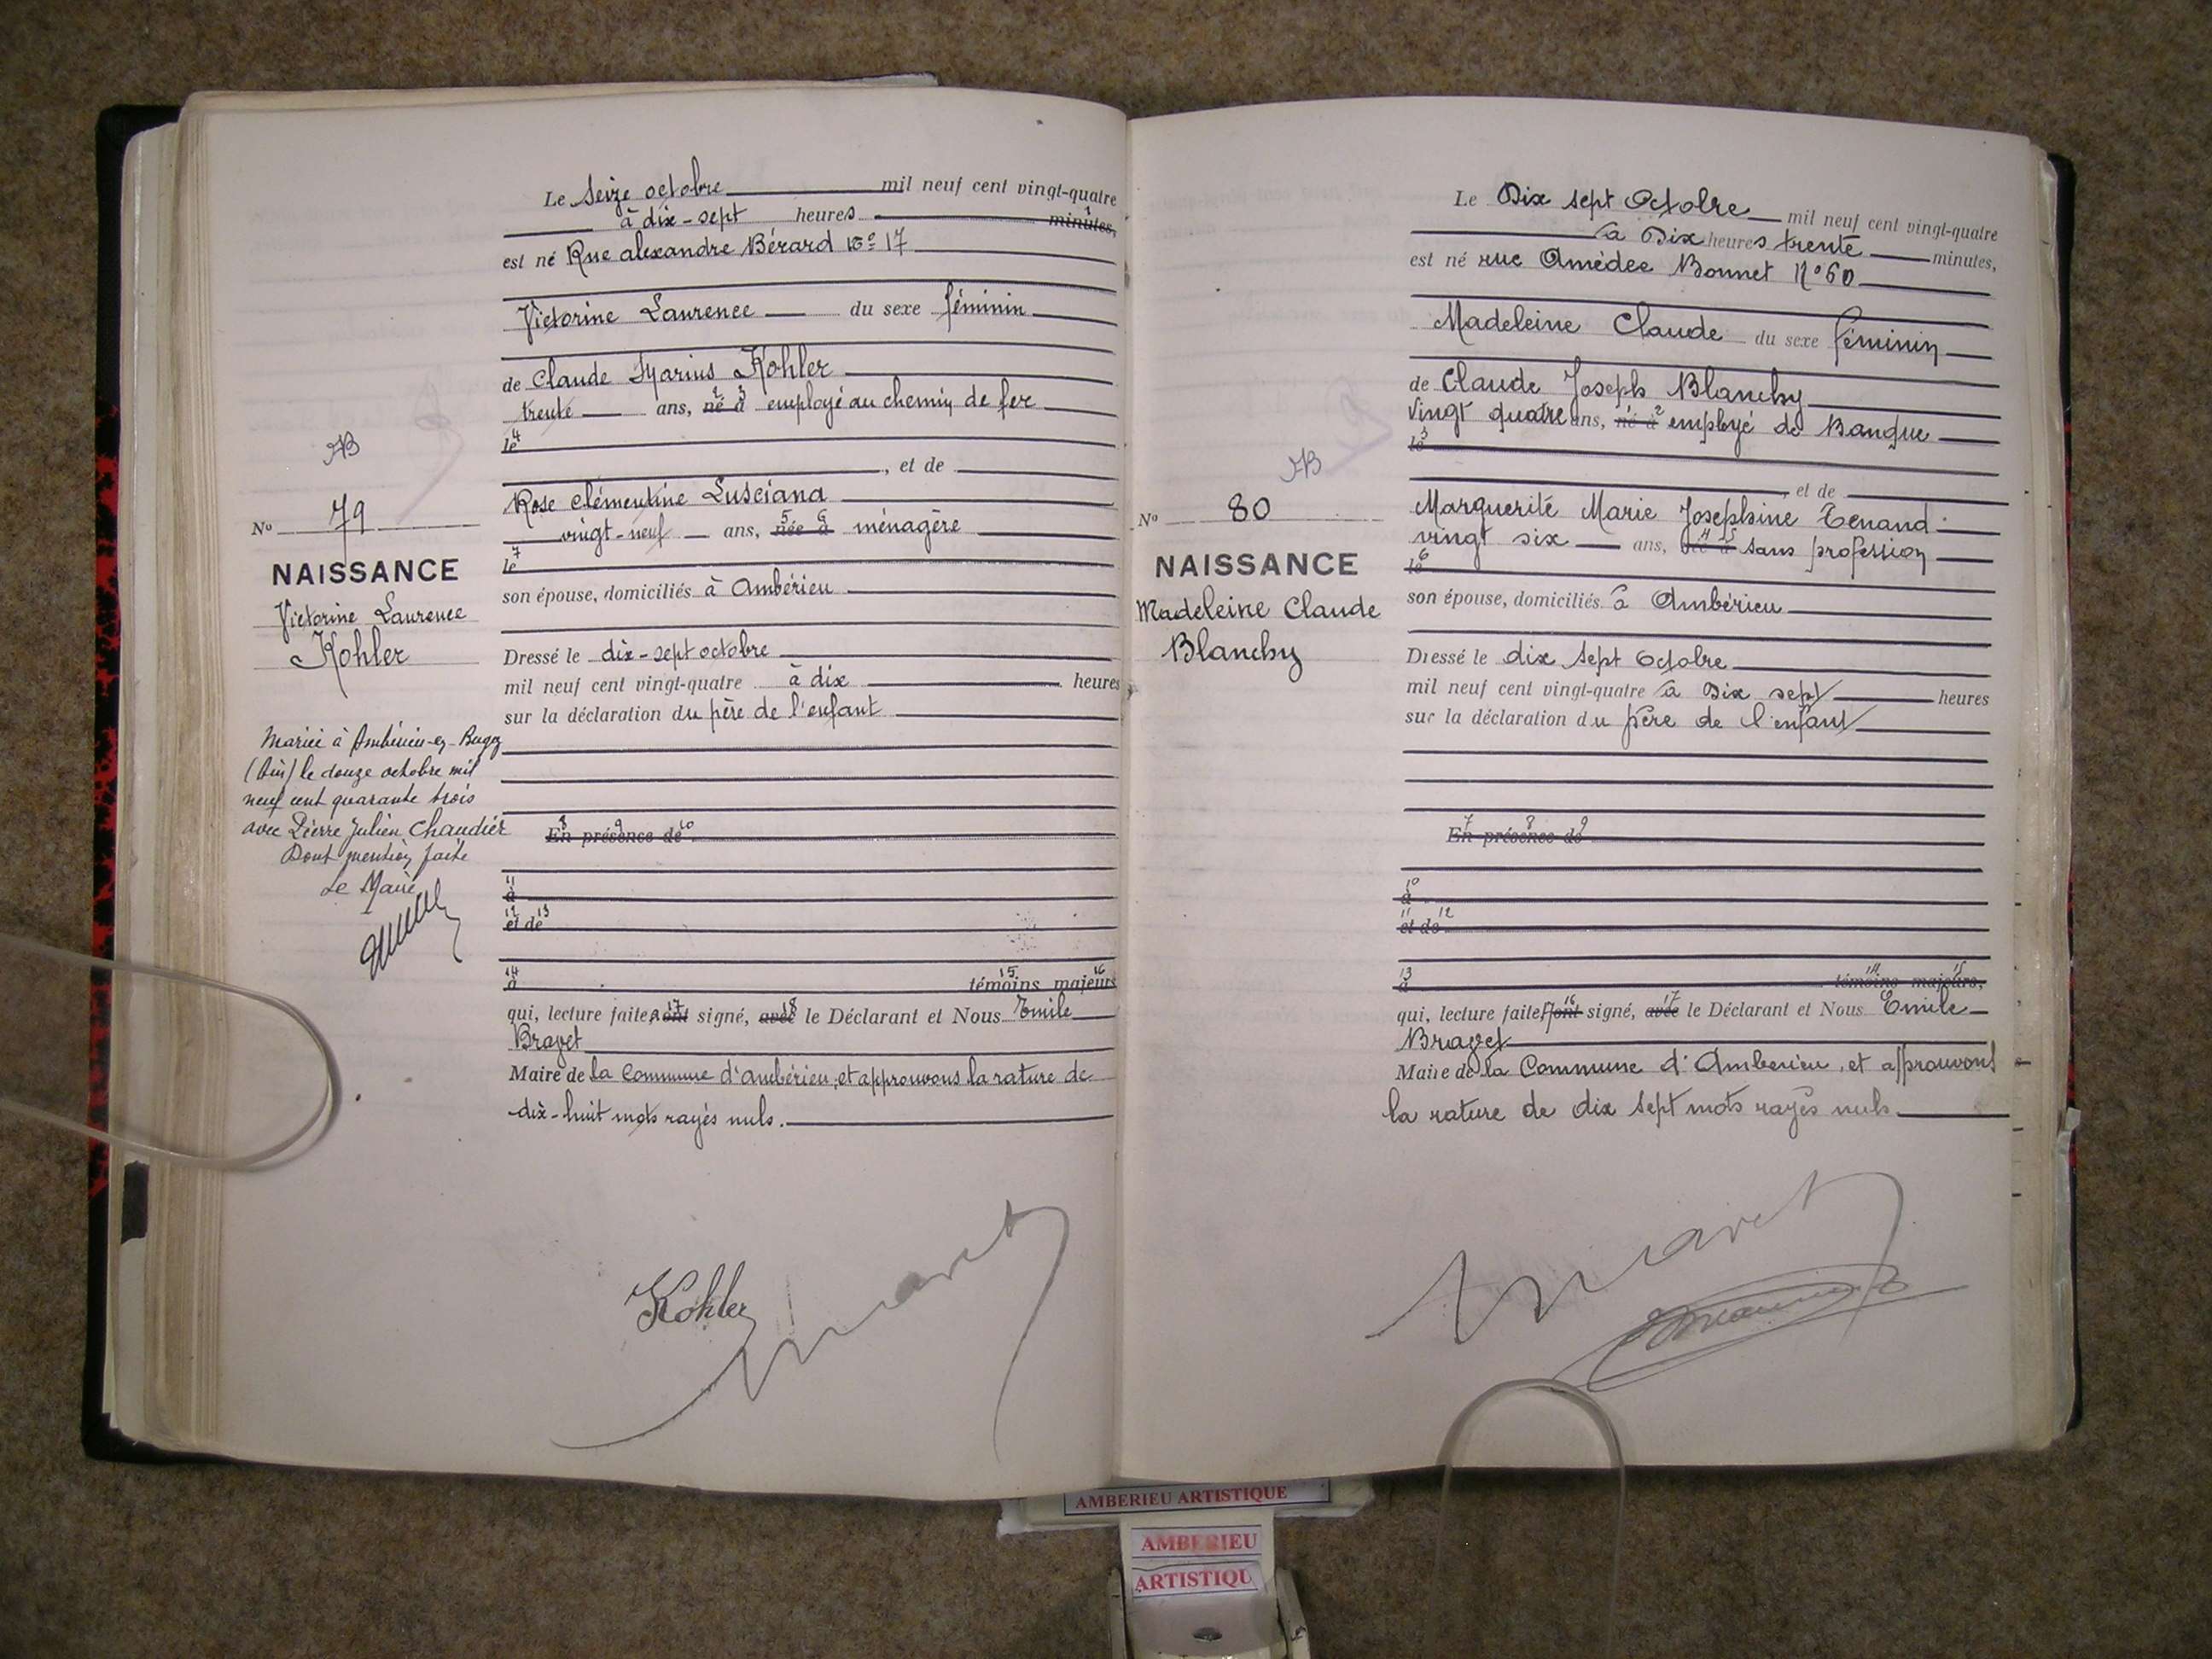 Le Seize octobre mil neuf cent vingt-quatre
à dix-sept heures minutes,
est né Rue alexandre Bérard No 17
Victorine Laurence du sexe féminin
de Claude Marius Kohler
trente ans, né à employé au chemin de fer
le
, et de
Rose Clémentine Lusciana
vingt-neuf ans, née à ménagère
le
son épouse, domiciliés à Ambérieu
Dressé le dix-sept octobre
mil neuf cent vingt-quatre à dix heures
sur la déclaration du père de l'enfant
En présence de
à
et de
à témoins majeurs
qui, lecture faite, ont signé, avec le Déclarant et Nous Emile
Bravet
Maire de la Commune d'ambérieu, et approuvons la rature de
dix-huit mots rayés nuls.
Kohler
B
No 79
NAISSANCE
Victorine Laurence
Kohler
Mariée à Ambérieu-en-Bugey
(Ain) le douze octobre mil
neuf cent quarante trois
avec Pierre Julien Chaudier
Dont mention faite
Le Maire
Le Dix sept Octobre mil neuf cent vingt-quatre
à Dix heures trente minutes,
est né rue Amédée Bonnet N° 60
Madeleine Claude du sexe féminin
de Claude Joseph Blanchy
Vingt quatre ans, né à employé de Banque
le
, et de
Marguerite Marie Josephine Tenand
vingt six ans, née à sans profession
le
son épouse, domiciliés à Ambérieu
Dressé le dix sept Octobre
mil neuf cent vingt-quatre à Dix sept heures
sur la déclaration du père de l'enfant
En présence de
à
et de
à témoins majeurs,
qui, lecture faite, ont signé, avec le Déclarant et Nous Emile
Bravet
Maire de la Commune d'Amberieu, et approuvons
la rature de dix sept mots rayés nuls
B
No 80
NAISSANCE
Madeleine Claude
Blanchy
AMBERIEU ARTISTIQUE
AMBERIEU
ARTISTIQU